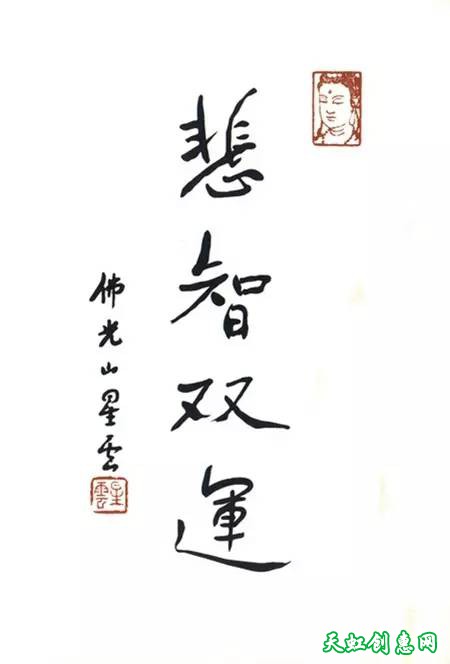 悲智双運
佛光山星雲
星雲
天虹创意网